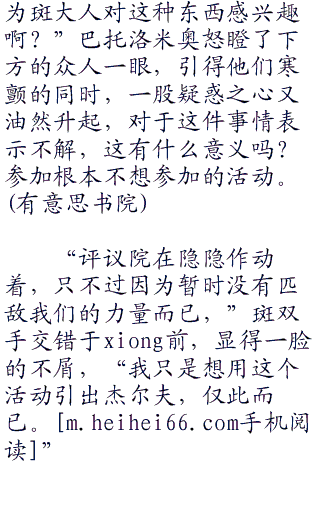 为斑大人对这种东西感兴趣
啊？”巴托洛米奥怒瞪了下
方的众人一眼，引得他们寒
颤的同时，一股疑惑之心又
油然升起，对于这件事情表
示不解，这有什么意义吗？
参加根本不想参加的活动。
(有意思书院)
“评议院在隐隐作动
着，只不过因为暂时没有匹
敌我们的力量而已，”斑双
手交错于xiong前，显得一脸
的不屑，“我只是想用这个
活动引出杰尔夫，仅此而
已。[m.heihei66.com手机阅
读]”